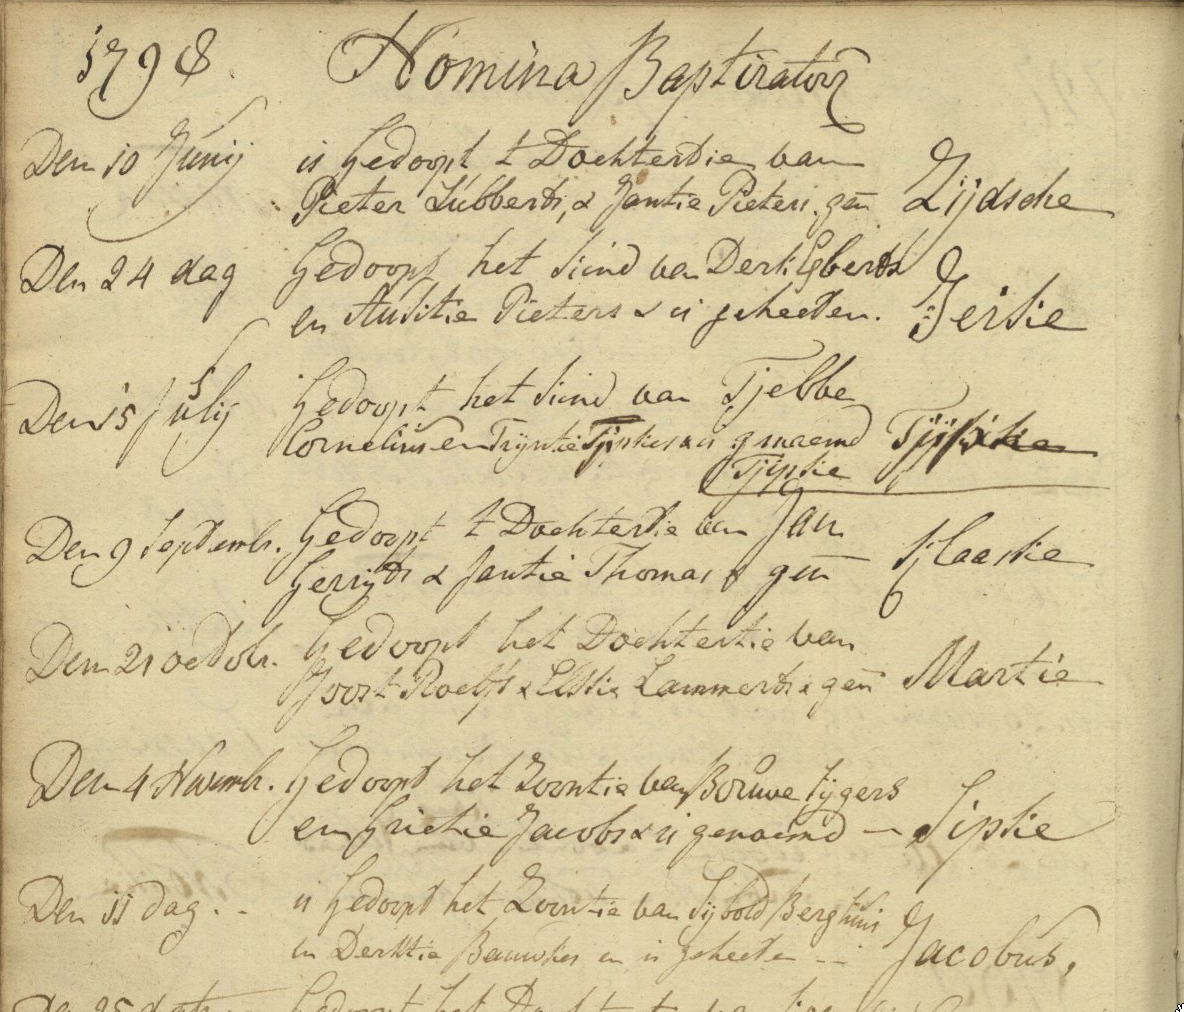 1798. Nomina Baptizator
Den 10 Junij is Gedoopt t Dochtertie van
Pieter Lubberts, & Jantie Pieters, gen Zijdsche
Den 24 dag Gedoopt het kind van Derk Egberts
en Aukitie Pieters & is geheeten. Jeisie
Den 15 Julij Gedoopt het kind van Tjebbe
Cornelius en Trijntie & is genaemd
Tjipkie
Den 9 Septembr. Gedoopt t Dochtertie van Jan
Gerrijts & Jantie Thomas & gen Klaaskie
Den 21 octobr. Gedoopt het Dochtertie van
Joost Roelfs & Elskie Lammerts & gen Martie
Den 4 Novembr. Gedoopt het Zoontie van Bouwe Sijgers
en Grietie Jacobs & is genaemd - Sipkie
Den 11 dag. . - is Gedoopt het Zoontie van Sijbold Berghuis
en Derktie Bauwkes en is geheeten - - Jacobus,
Gedoopt het